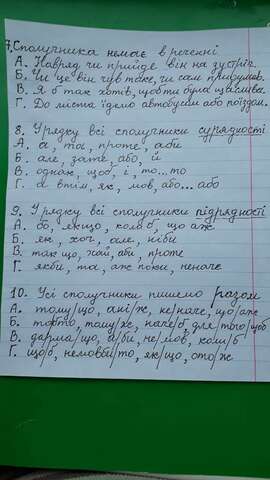 7. Сполучника немає в реченні
А. Навряд чи прийде він на зустріч.
Б. Чи це він чув таке, чи сам придумав.
В. Я б так хотів, щоб ти була щаслива.
Г. До міста їдемо автобусом або поїздом.
8. У рядку всі сполучники сурядності
А. а, та, проте, аби
Б. але, зате, або, й
В. однак, щоб, і, то...то
Г. а втім, як, мов, або...або
9. У рядку всі сполучники підрядності
А. бо, якщо, коли б, що аж
Б. як, хоч, але, ніби
В. так що, хай, аби, проте
Г. якби, та, аж поки, неначе
10. Усі сполучники пишемо разом
А. тому/що, ані/ж, не/наче, що/аж
Б. тобто, тому/ж, наче/б, для/того/щоб
В. дарма/що, а/би, не/мов, кол/б
Г. що/б, немовби/то, як/що, ото/ж